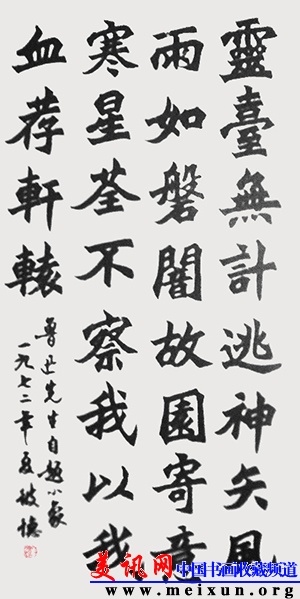 靈臺無計逃神矢風
雨如磐闇故園寄意
寒星荃不察我以我
血荐軒轅
魯迅先生自题小象
一九七二年夏
美讯网 中国书画收藏频道
www.meixun.org